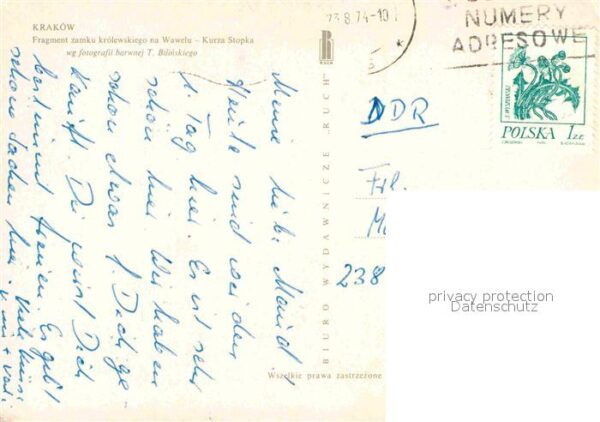 KRAKÓW
Fragment zamku królewskiego na Wawelu – Kurza Stopka
wg fotografii barwnej T. Bilińskiego
23.8.74-10
NUMERY
ADRESOWE
POLSKA 1 ZŁ
RUCH
BIURO WYDAWNICZE RUCH
Wszelkie prawa zastrzeżone
Meine liebe
Heute sind wir den
1. Tag hier. Es ist sehr
schön hier. Wir haben
schon etwas f. Dich ge-
kauft. Du wirst Dich
bestimmt freuen. Es gibt
schon Sachen hier. Viele
DDR
Frl.
238
privacy protection
Datenschutz